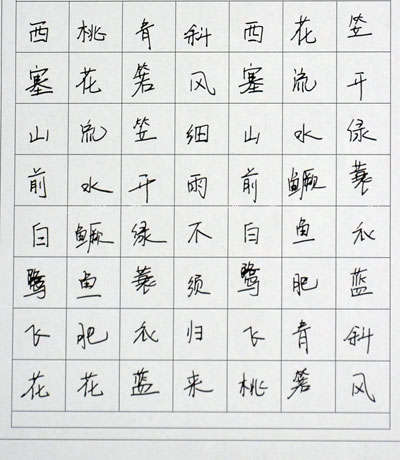 西塞山前白鹭飞花
桃花流水鳜鱼肥花
青箬笠开绿蓑衣蓝
斜风细雨不须归来
西塞山前白鹭飞桃
花流水鳜鱼肥青箬
笠开绿蓑衣蓝斜风